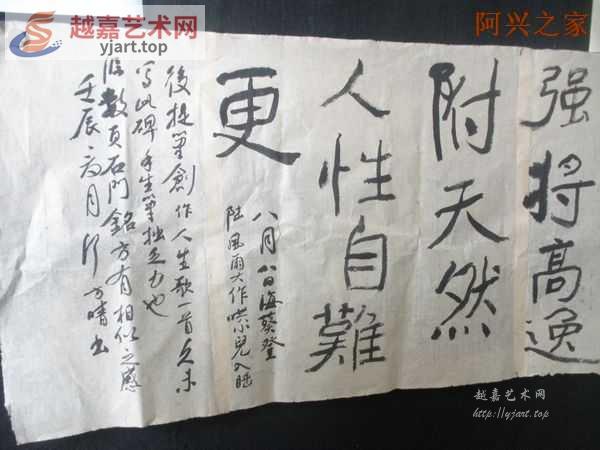 越嘉艺术网
yjart.top
阿兴之家
强将高逸
附天然
人性自難
更
八月八日海葵登
陆風雨大作哄小兒入睡
後提筆創作人生歌一首久未
写此碑手生筆乏力也
临数頁石門銘方有相似之感
壬辰月
越嘉艺术网
http://yjart.top